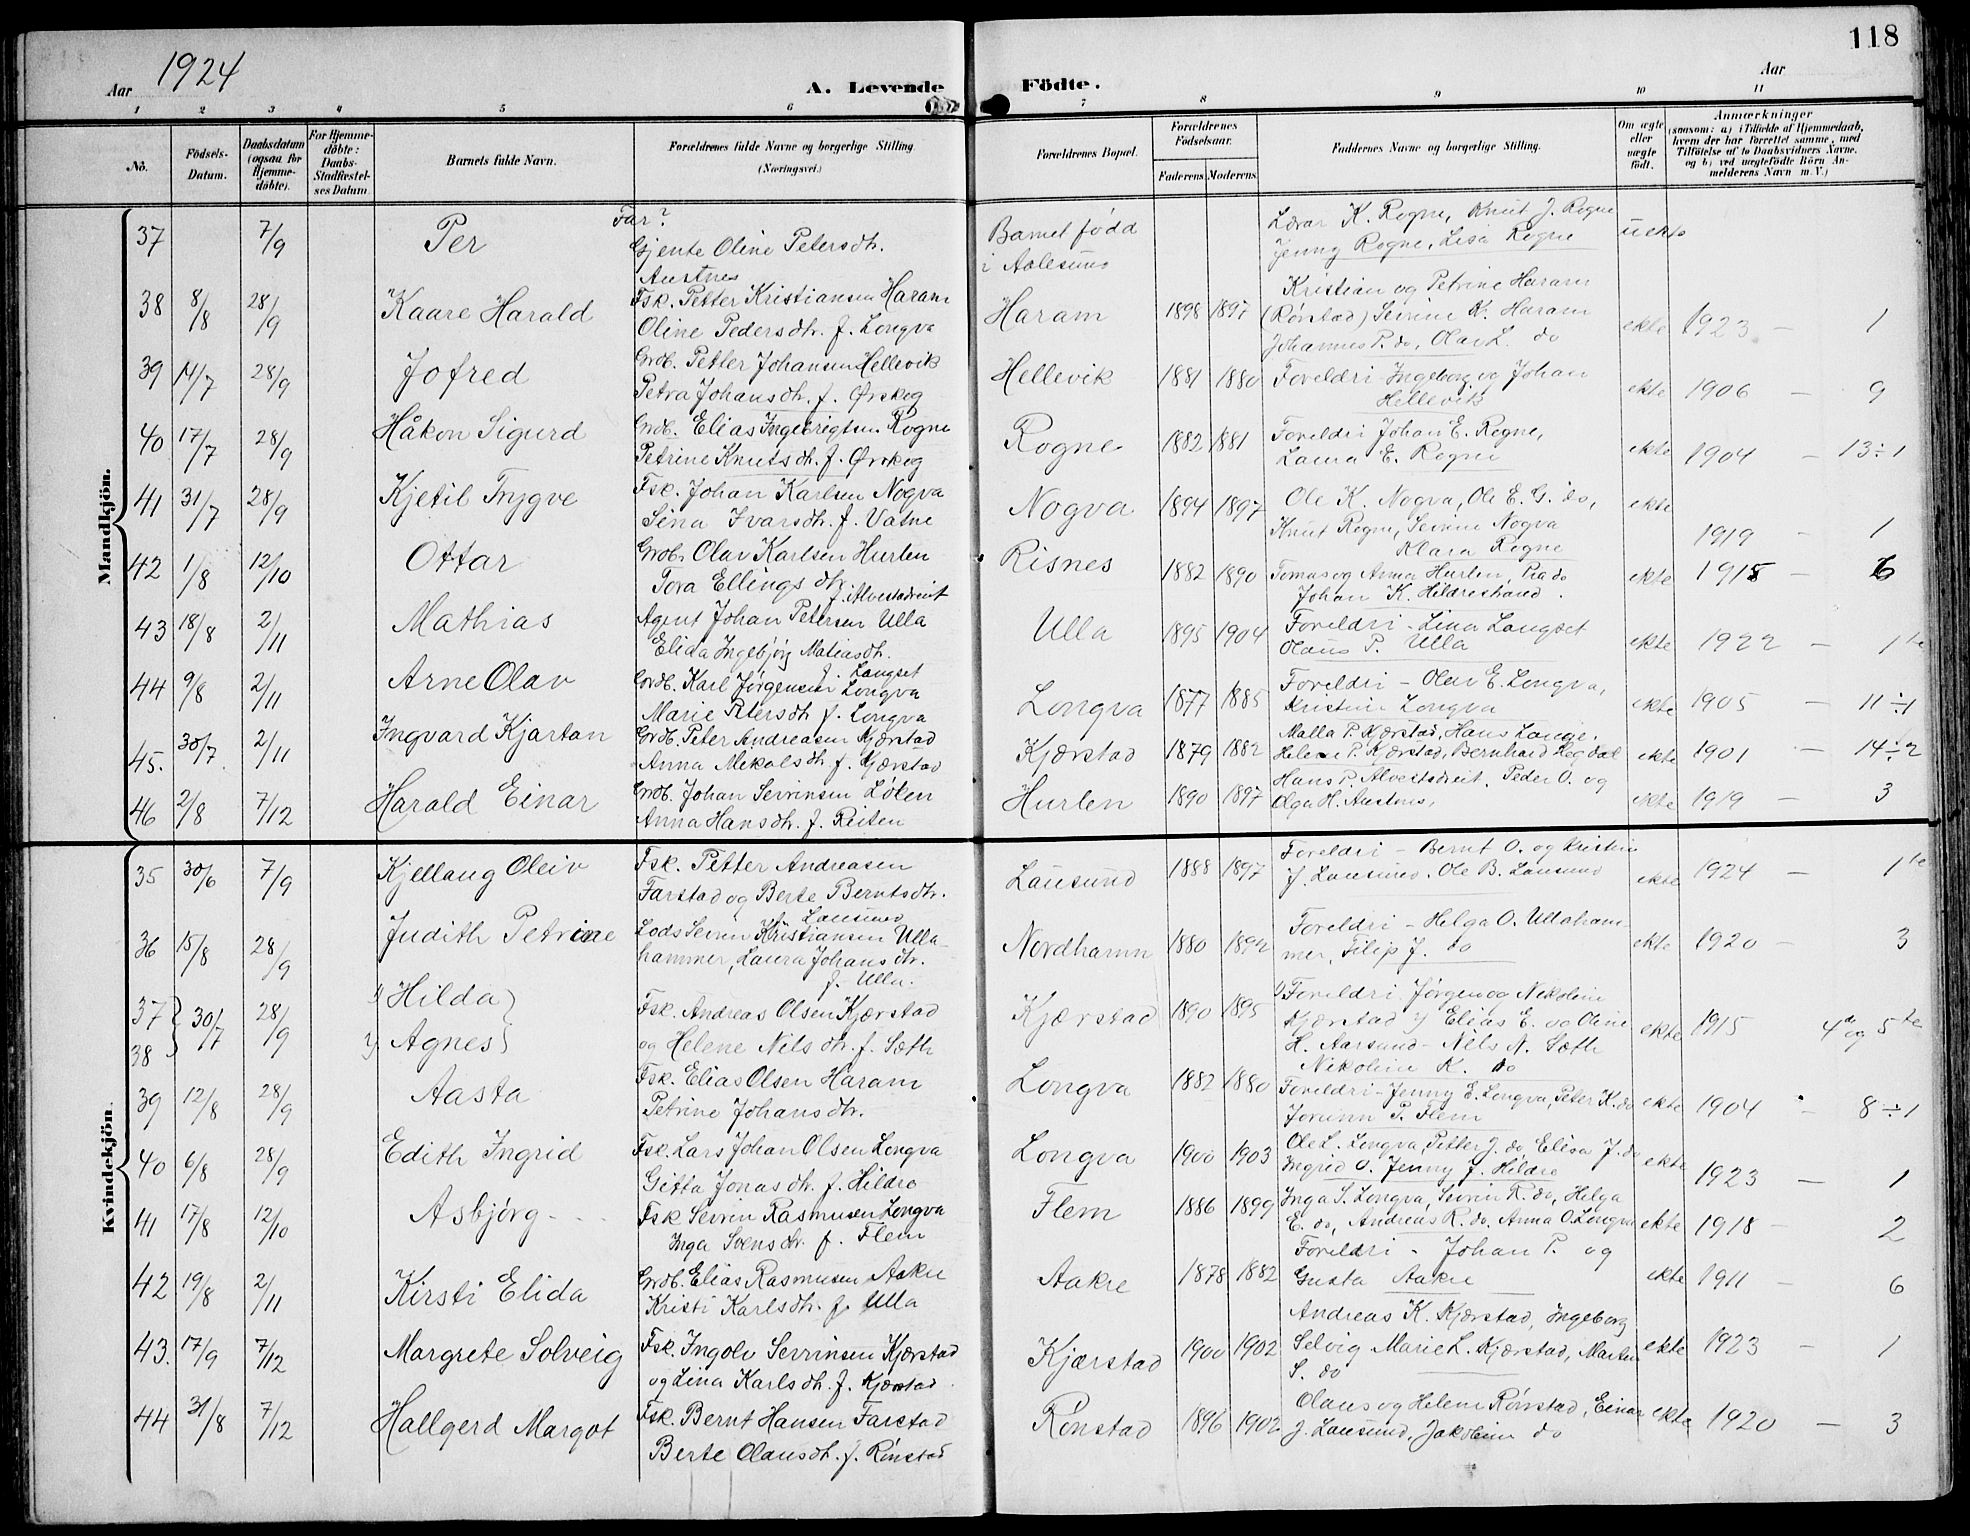 118
Aar 1924
A. Levende Födte.
Aar
1 2 3 4 5 6 7 8 9 10 11
No.
Födsels-Datum.
Daabsdatum (ogsaa for Hjemme-döbte).
For Hjemme-döbte: Daabs-Stadfestel-ses Datum
Barnets fulde Navn.
Forældrenes fulde Navne og borgerlige Stilling. (Næringsvei.)
Forældrenes Bopæl.
Forældrenes Födselsaar.
Faderens Moderens
Faddernes Navne og borgerlige Stilling.
Om ægte eller uægte födt.
Anmærkninger (saasom: a) i Tilfælde af Hjemmedaab, hvem der har forrettet samme, med Tilföielse af to Daabsvidners Navne, og b) ved uægtefödte Börn An-melderens Navn m. V.)
Mandkjön.
37 7/9 Per Far?
Gjente Oline Petersdtr. Austnes
Barnet fødd i Aalesund
Lærar K. Rogne, Knut J. Rogne
Jenny Rogne, Lisa Rogne
uekte
38 8/8 28/9 Kaare Harald
Fsk. Petter Kristiansen Haram
Oline Pedersdtr. f. Longva
Haram 1898 1897
Kristian og Petrine Haram
(Rønstad) Sevrine K. Haram
Johannes P. do, Olav L. do
ekte 1923 — 1
39 14/7 28/9 Jofred
Grdb. Petter Johansen Hellevik
Petra Johansdtr. f. Ørskog
Hellevik 1881 1880
Foreldri Ingeborg og Johan
Hellevik
ekte 1906 — 9
40 17/7 28/9 Håkon Sigurd
Grdb. Elias Ingebrigtsen Rogne
Petrine Knutsdtr. f. Ørskog
Rogne 1882 1881
Foreldri Johan E. Rogne,
Laura E. Rogne
ekte 1904 — 13÷1
41 31/7 28/9 Kjetil Trygve
Fsk. Johan Karlsen Nogva
Sina Ivarsdtr. f. Vatne
Nogva 1894 1897
Ole K. Nogva, Ole E. G. do,
Knut Rogne, Sevrine Nogva
Klara Rogne
ekte 1919 — 1
42 1/8 12/10 Ottar
Grdb. Olav Karlsen Hurlen
Tora Ellingsdtr. f. Alvestadreit
Risnes 1882 1890
Tomas og Anna Hurlen, Pia do
Johan K. Hildrestrand.
ekte 1915 — 6
43 18/8 2/11 Mathias
Agent Johan Petersen Ulla
Elida Ingebjørg Matiasdtr.
f. Langset
Ulla 1895 1904
Foreldri - Lina Langset
Olaus P. Ulla
ekte 1922 — 1te
44 9/8 2/11 Arne Olav
Grdb. Karl Jørgensen Longva
Marie Petersdtr f. Longva
Longva 1877 1885
Foreldri - Olav E. Longva,
Kristine Longva
ekte 1905 — 11÷1
45. 30/7 2/11 Ingvard Kjartan
Grdb. Peter Andreasen Kjærstad
Anna Mekalsdtr. f. Kjærstad
Kjærstad 1879 1882
Malla P. Kjærstad, Hans Lange.
Helene P. Kjærstad, Bernhard Hegdal
ekte 1901 — 14÷2
46 2/8 7/12 Harald Einar
Grdb. Johan Sevrinsen Løken
Anna Hansdtr. f. Reiten
Hurlen 1890 1897
Hans P. Alvestadreit, Peder O. og
Olga H. Austnes,
ekte 1919 — 3
Kvindekjön.
35 30/6 7/9 Kjellaug Oleiv
Fsk. Petter Andreasen
Farstad og Berte Berntsdtr.
f. Lausund
Lausund 1888 1897
Foreldri - Bernt O. og Kristine
J. Lausund. Ole B. Lausund
ekte 1924 — 1te
36 15/8 28/9 Judith Petrine
Lods Sevrin Kristiansen Ulla-
hammer, Laura Johansdtr.
f. Ulla.
Nordhamn 1880 1892
Foreldri - Helga O. Ullaham-
mer, Filip J. do
ekte 1920 — 3
37 38 30/7 28/9 1) Hilda
2) Agnes
Fsk. Andreas Olsen Kjærstad
og Helene Nilsdtr. f. Sæth
Kjærstad 1890 1895
1) Foreldri. Jørgen og Nekoline
Kjærstad 2) Elias E. og Oline
H. Aarsund - Nils N. Sæth
Nikoline K. do
ekte 1915 4de og 5te
39 12/8 28/9 Aasta
Fsk. Elias Olsen Haram
Petrine Johansdtr.
Longva 1882 1880
Foreldri - Jenny E. Longva, Peter K. do
Jorunn P. Flem
ekte 1904 — 8÷1
40 6/8 28/9 Edith Ingrid
Fsk. Lars Johan Olsen Longva
Gitta Jonasdtr. f. Hildre
Longva 1900 1903
Ole L. Longva, Petter J. do, Elisa J. do
Ingrid O. Jenny J. Hildre
ekte 1923 — 1
41 17/8 12/10 Asbjørg
Fsk Sevrin Rasmusen Longva
Inga Svensdtr. f. Flem
Flem 1886 1899
Inga S. Longva, Sevrin R. do, Helga
E. do, Andreas R. do. Anna O. Longva
ekte 1918 — 2
42 19/8 2/11 Kirsti Elida
Grdb. Elias Rasmusen Aakre
Kristi Karlsdtr. f. Ulla
Aakre 1878 1882
Foreldri - Johan P. og
Gusta Aakre
ekte 1911 — 6
43. 17/9 7/12 Margrete Solveig
Fsk. Ingolv Sevrinsen Kjærstad
og Lina Karlsdtr. f. Kjærstad
Kjærstad 1900 1902
Andreas K. Kjærstad, Ingeborg
Selvig Marie L. Kjærstad, Marten
S. do
ekte 1923 — 1
44 31/8 7/12 Hallgerd Margot
Fsk. Bernt Hansen Farstad
Berte Olausdtr. f. Rønstad
Rønstad 1896 1902
Olaus og Helene Rønstad, Einar
J. Lausund, Jakobine do
ekte 1920 — 3